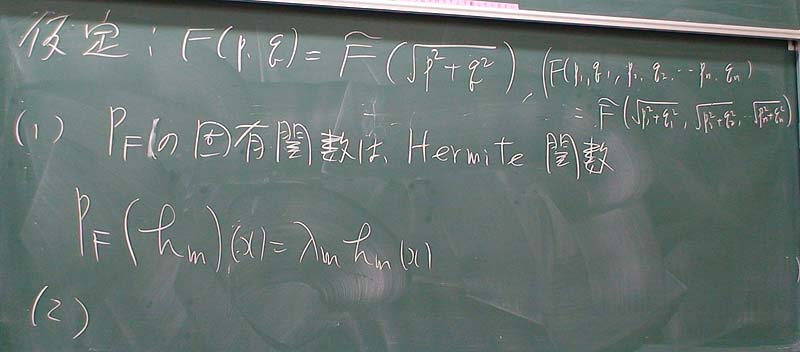 仮定 : F(p, q) = F̃(√p²+q²), (F(p₁, q₁, p₂, q₂, … pₙ, qₙ)
= F̃(√p₁²+q₁², √p₂²+q₂², … √pₙ²+qₙ²)
(1) P_F の固有関数は Hermite 関数
P_F(hₘ)(x) = λₘ hₘ(x)
(2)